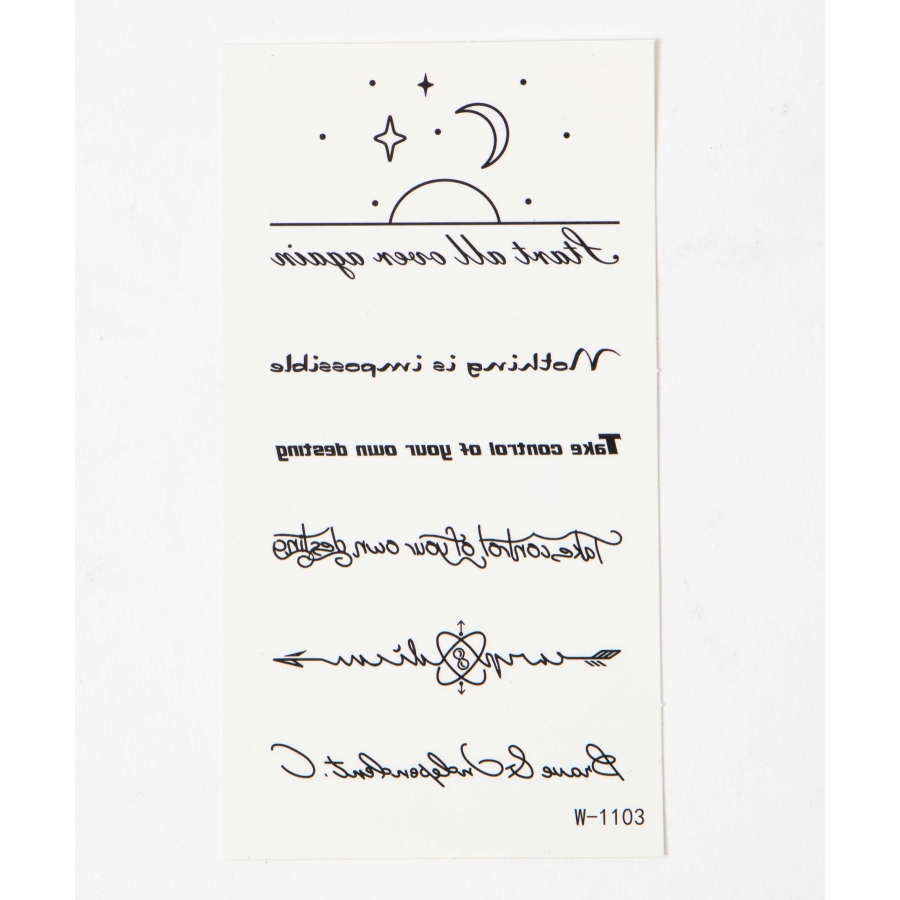 Start all over again
Nothing is impossible
Take control of your own desting
Take control of your own desting
carp diem
Brave & Independent. C
W-1103